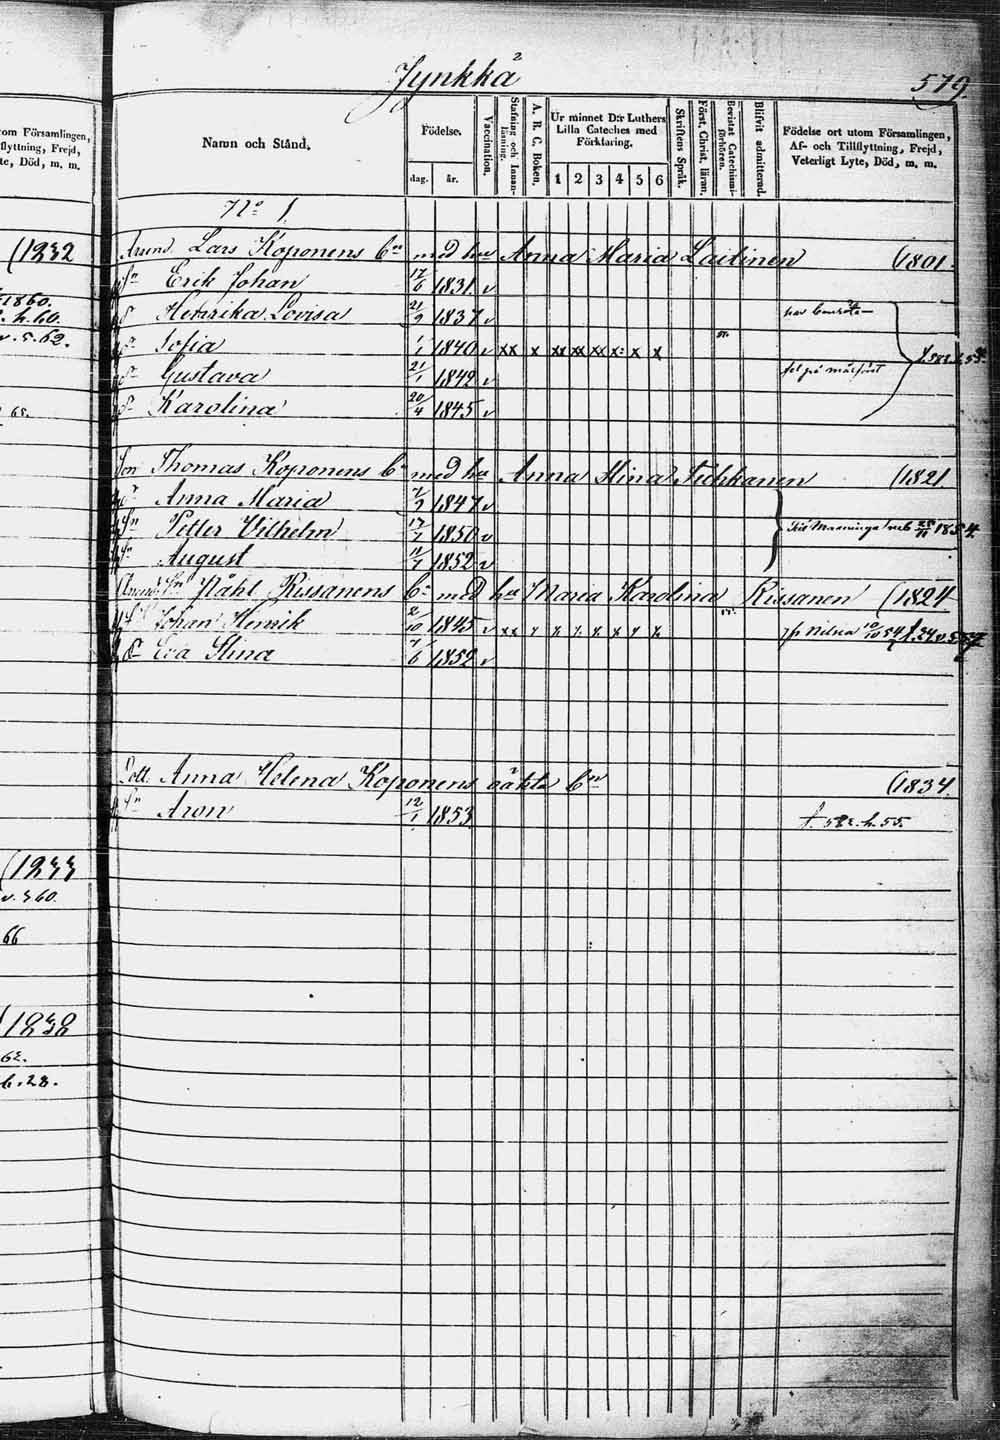 Jynkkä
579.
om Församlingen,
flyttning, Frejd,
te, Död, m. m.
Namn och Stånd.
Födelse.
dag. år.
Vaccination.
Stafning och Innan-
läsning.
A. B. C. Boken.
Ur minnet D:r Luthers
Lilla Cateches med
Förklaring.
1 2 3 4 5 6
Skriftens Språk.
Först. Christ. läran.
Bevistat Catechismi-
förhören.
Blifvit admitterad.
Födelse ort utom Församlingen,
Af- och Tillflyttning, Frejd,
Veterligt Lyte, Död, m. m.
No 1.
(1832
Lars Koponens Bn med hu Anna Maria Laitinen (1801.
Sn Erik Johan 17/6 1831 v
1860.
Henrika Lovisa 21/9 1837 v
h. 60.
v. 5. 62.
Sofia 1/1 1840 v xx x xx xx xx x: x x
Gustava 21/1 1842 v
Karolina 20/4 1845 v
65.
Son Thomas Koponens Bn med hu Anna Stina Tichkanen (1821.
Anna Maria 7/9 1847 v
Sn Petter Vilhelm 17/7 1850 v
Maaninga 1854.
Sn August 11/7 1852 v
Påhl Rissanens Bn med hu Maria Karolina Rissanen (1824
Johan Henrik 2/10 1845 v
Eva Stina 7/6 1852 v
Dott. Anna Helena Koponens oäkta Bn (1834.
Sn Aron 12/1 1853
f. 582. h. 55.
(1833
v. 360.
66
(1838
62.
6. 28.